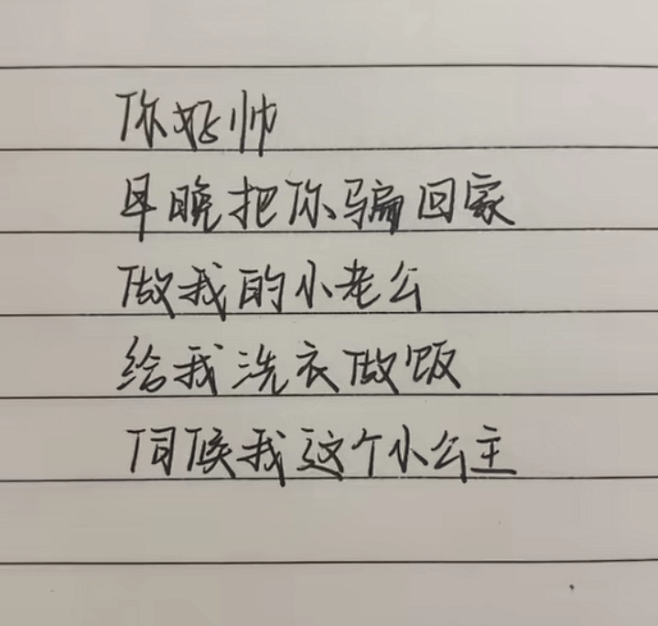 你好帅
早晚把你骗回家
做我的小老公
给我洗衣做饭
伺候我这个小公主